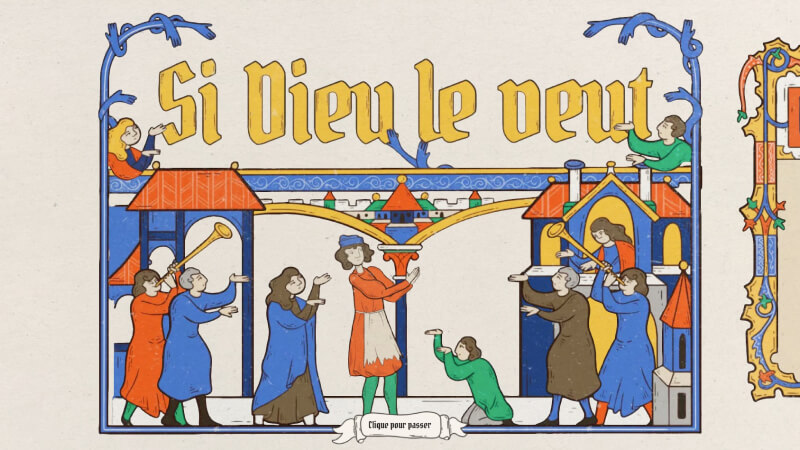 Si Dieu le veut
Clique pour passer